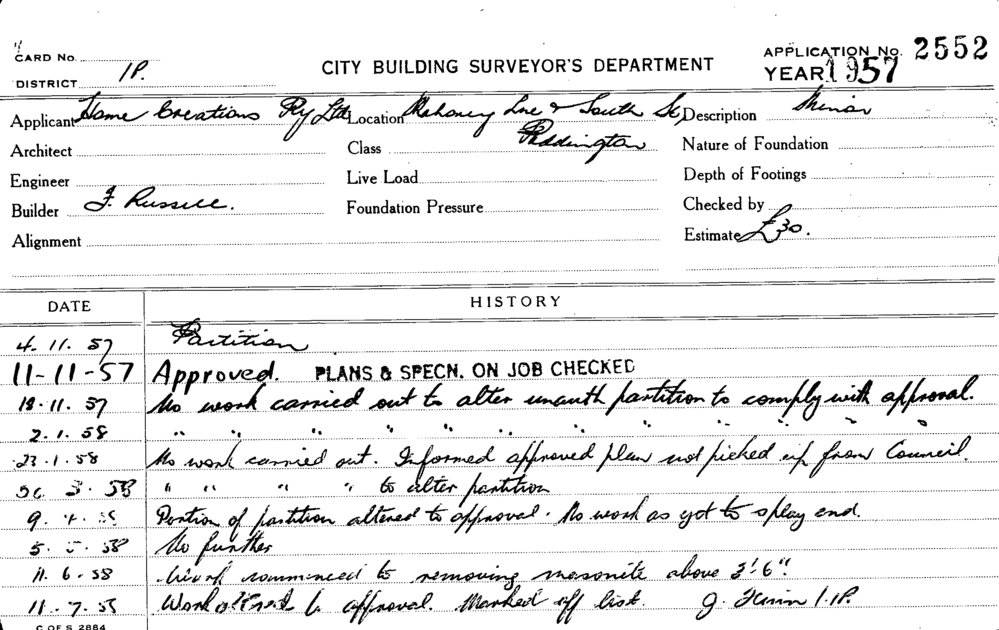 CARD No.
DISTRICT 1P.
CITY BUILDING SURVEYOR'S DEPARTMENT
APPLICATION No. 2552
YEAR 1957
Applicant Home Creations Pty Ltd Location Mahoney Lne & South St, Description Minor
Architect Class Paddington Nature of Foundation
Engineer Live Load Depth of Footings
Builder F. Russell. Foundation Pressure Checked by
Alignment Estimate £30.
DATE HISTORY
4. 11. 57 Partition
11-11-57 Approved. PLANS & SPECN. ON JOB CHECKED
18.11.57 No work carried out to alter unauth partition to comply with approval.
2.1.58 " " " " " " " " " " "
23.1.58 No work carried out. Informed approved plan not picked up from Council.
3.58 " " " " to alter partition
9.4.58 Portion of partition altered to approval. No work as yet to splay end.
5.5.58 No further
11.6.58 Work commenced to removing masonite above 3'.6".
11.7.58 Work altered to approval. Marked off list. J. 1.P.
C OF S 2884